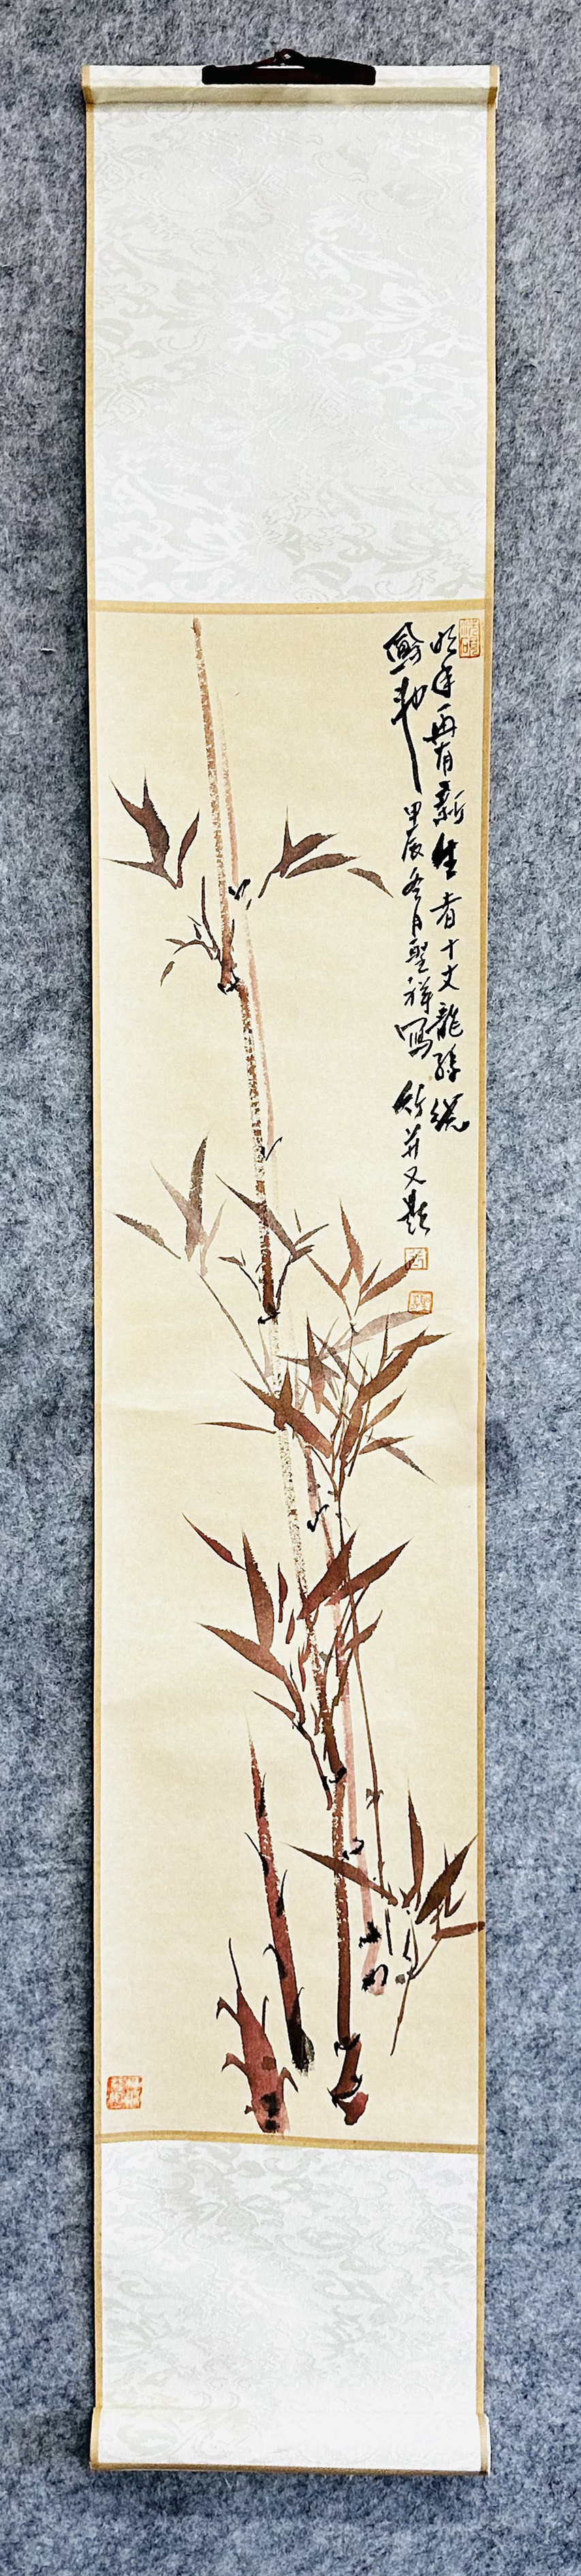 明年再有新生者十丈龍孫繞
鳳池甲辰冬月聖祥寫竹并又題